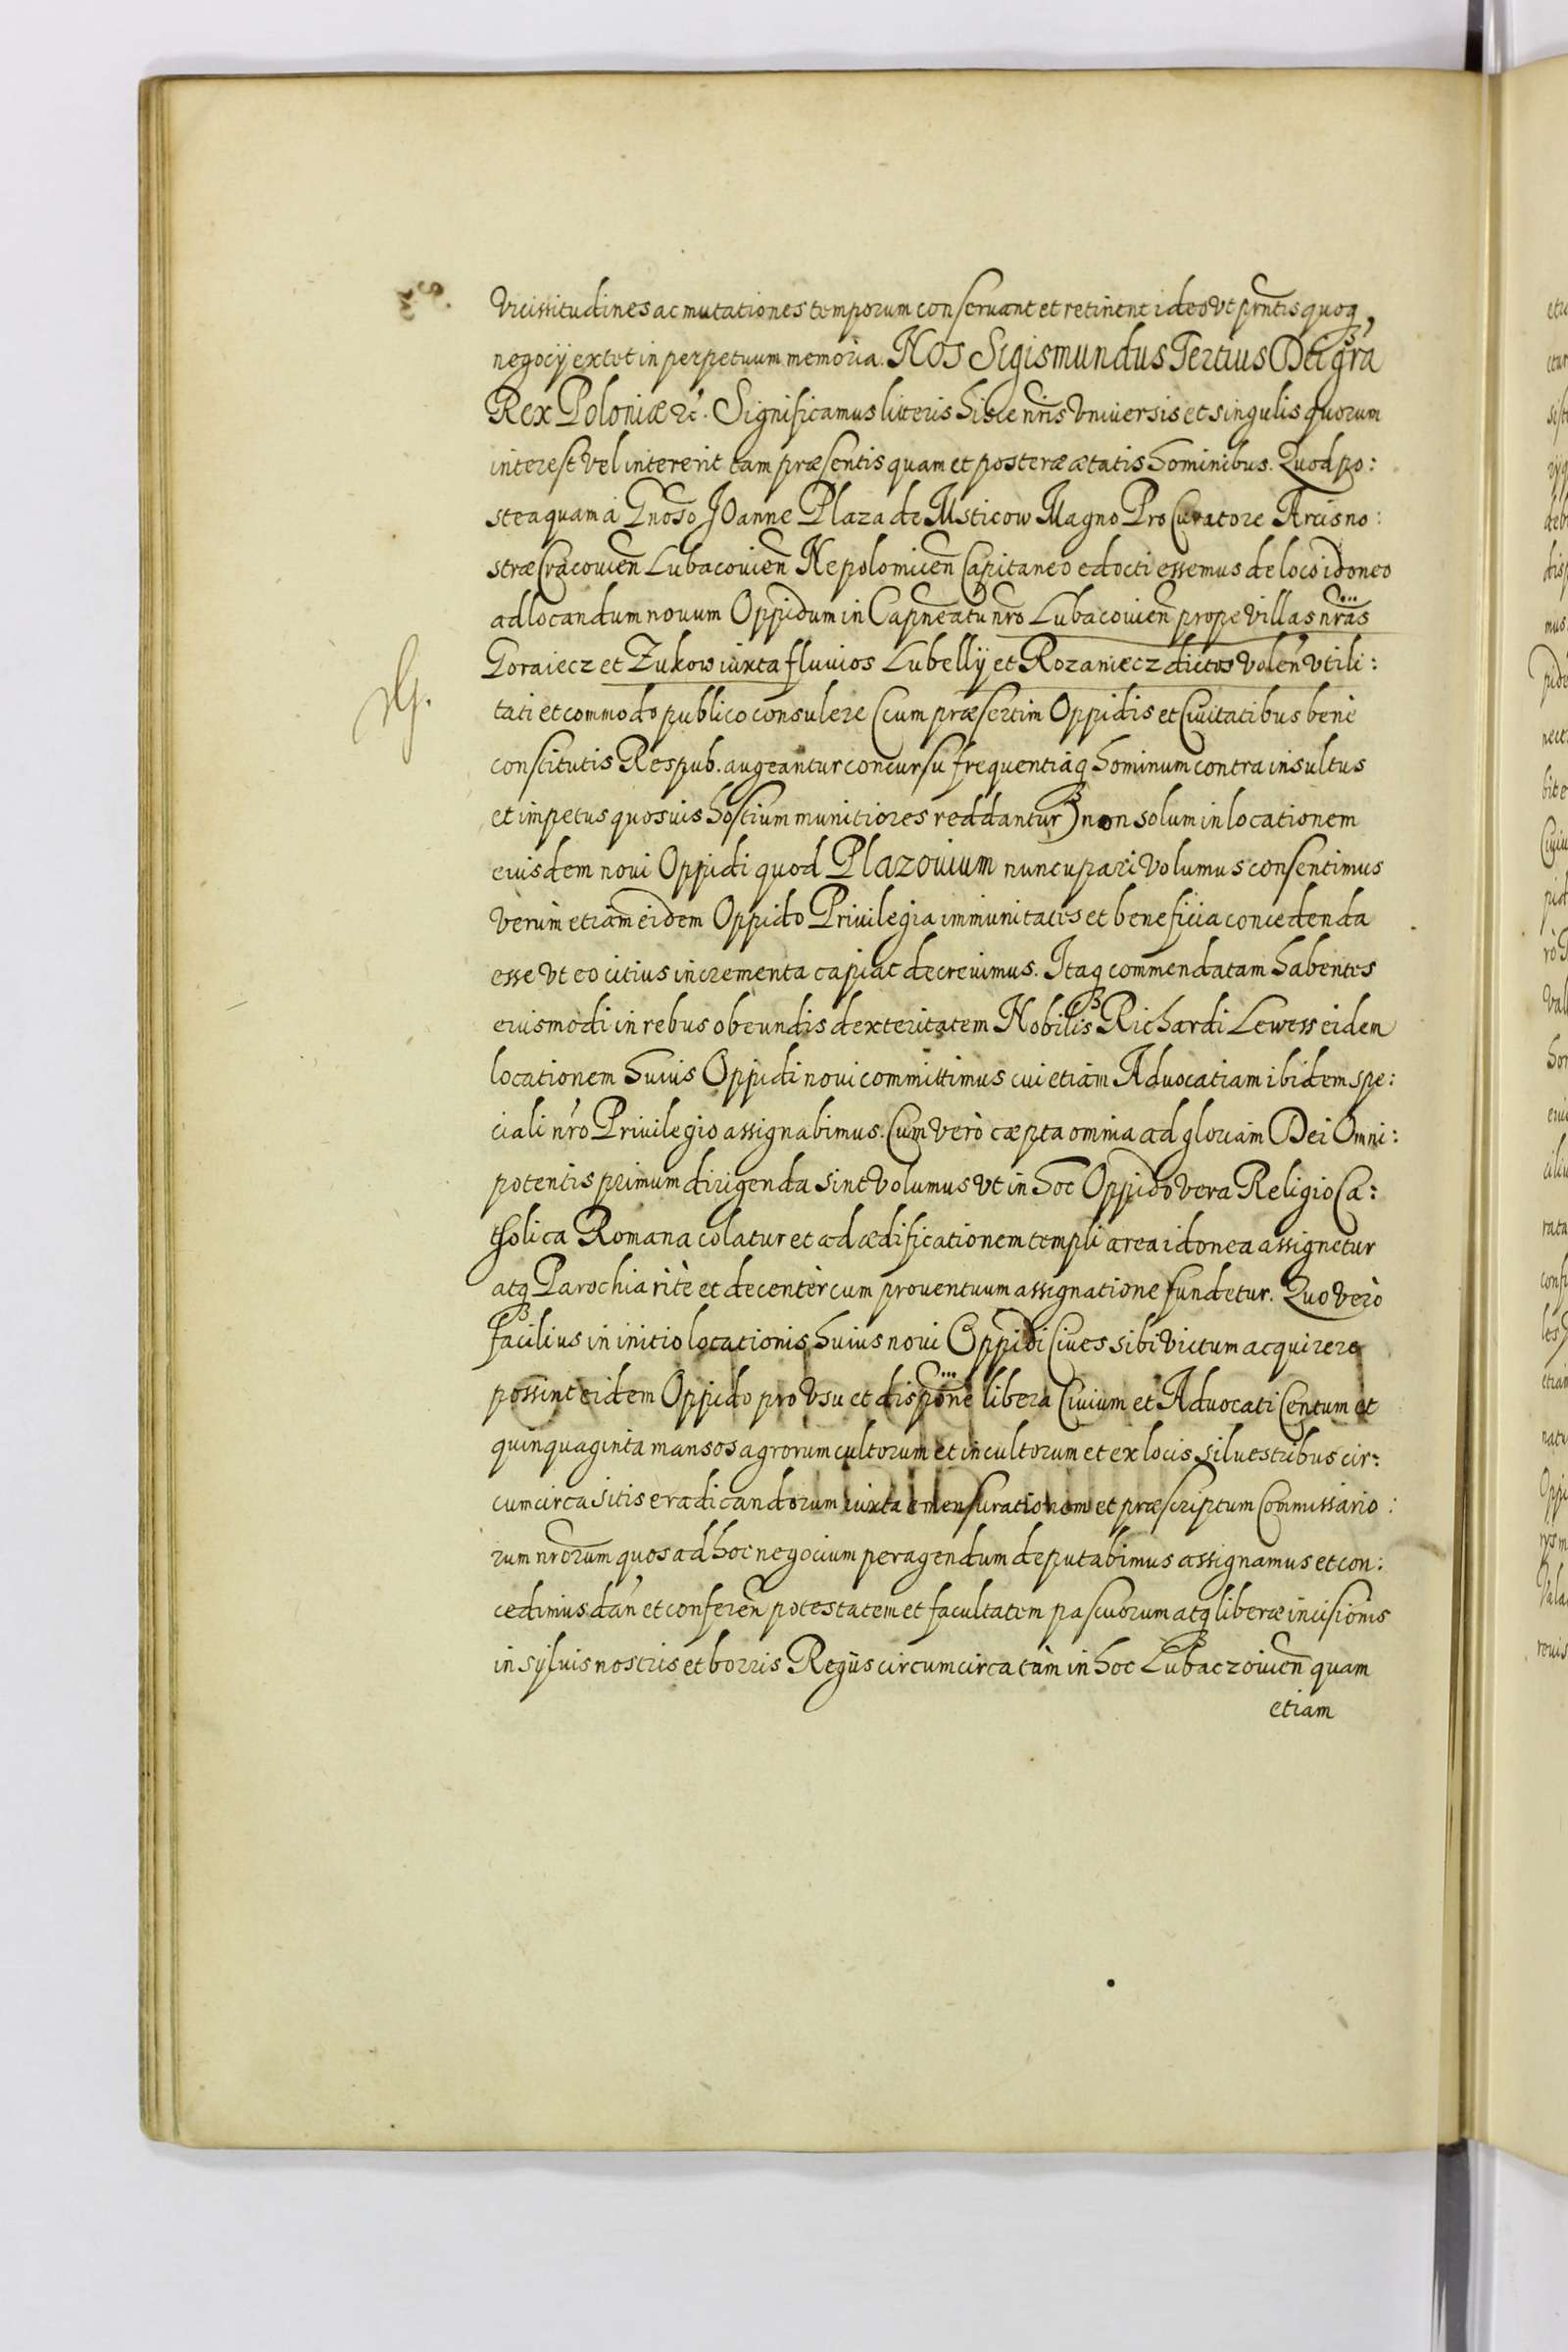 Vicissitudines ac mutationes temporum conservant et retinent ideo Vt prntis quoq,
negocij extet in perpetuum memoria. NOS Sigismundus Tertius Dei gra
Rex Poloniæ &c. Significamus literis hisce nris Vniversis et singulis quorum
interest Vel intererit tam præsentis quam et posteræ ætatis hominibus. Quod po:
steaquam a Gnoso Joanne Plaza de Msticow Magno Procuratore Arcis no:
stræ Cracovien Lubacovien Nepolomicen Capitaneo edocti essemus de loco idoneo
ad locandum novum Oppidum in Capneatu nro Lubacovien prope villas nras
Goraiecz et Zukow iuxta fluvios Lubellÿ et Rozaniecz dictos Volen Vtili:
tati et commodo publico consulere (cum præsertim Oppidis et Civitatibus benè
constitutis Respub. augeantur concursu frequentiaq hominum contra insultus
et impetus quosvis hostium munitiores reddantur) non solum in locationem
eiusdem novi Oppidi quod Plazovium nuncupari Volumus consentimus
Verùm etiam eidem Oppido Privilegia immunitates et beneficia concedenda
esse Vt eo citius incrementa capiat decrevimus. Itaq commendatam habentes
eiusmodi in rebus obeundis dexteritatem Nobilis Richardi Lewess eidem
locationem huius Oppidi novi committimus cui etiam Advocatiam ibidem spe:
ciali nro Privilegio assignabimus. Cum Verò cæpta omnia ad gloriam Dei Omni:
potentis primum dirigenda sint Volumus Vt in hoc Oppido vera Religio Ca:
tholica Romana colatur et ad ædificationem templi area idonea assignetur
atq Parochia ritè et decentèr cum proventuum assignatione fundetur. Quo Verò
facilius in initio locationis huius novi Oppidi Cives sibi Victum acquirere
possint eidem Oppido pro Vsu et dispone libera Civium et Advocati Centum et
quinquaginta mansos agrorum cultorum et incultorum et ex locis silvestribus cir:
cumcirca sitis eradicandorum iuxta emensurationem et præscriptum Commissario:
rum nrorum quos ad hoc negocium peragendum deputabimus assignamus et con:
cedimus dan et conferen potestatem et facultatem pascuorum atq liberæ incisionis
in sylvis nostris et borris Regÿs circumcirca tàm in hoc Lubaczovien quam
etiam